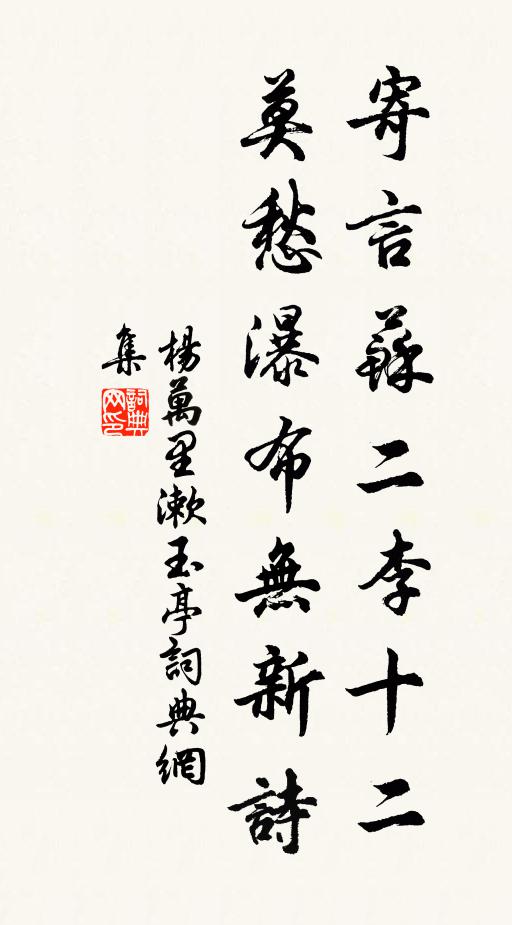 寄言蘇二李十二
莫愁瀑布無新詩
楊萬里漱玉亭詞典網
集
詞典网印